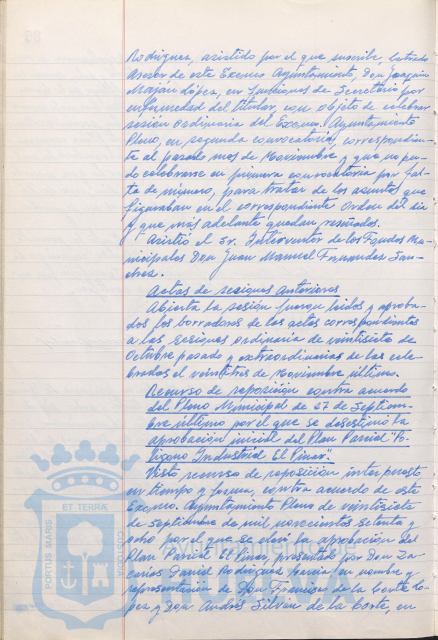 Rodríguez, asistido por el que suscribe, Letrado
Asesor de este Excmo Ayuntamiento, Don Joaquín
López, en funciones de Secretario por
enfermedad del titular, con objeto de celebrar
sesión ordinaria del Excmo. Ayuntamiento
Pleno, en segunda convocatoria, correspondien-
te al pasado mes de Noviembre y que no pu-
do celebrarse en primera convocatoria por fal-
ta de número, para tratar de los asuntos que
figuraban en el correspondiente Orden del día
y que más adelante quedan reseñados.
Asistió el Sr. Interventor de los Fondos Mu-
nicipales Don Juan Manuel Fernández Sán-
chez.
Actas de sesiones anteriores
Abierta la sesión fueron leídos y aproba-
dos los borradores de las actas correspondientes
a las sesiones ordinaria de veintisiete de
Octubre pasado y extraordinarias de las cele-
bradas el veintitres de Noviembre último.
Recurso de reposición contra acuerdo
del Pleno Municipal de 27 de Septiem-
bre último por el que se desestimó la
aprobación inicial del Plan Parcial "Po-
lígono Industrial El Pinar".
Visto recurso de reposición interpuesto
en tiempo y forma, contra acuerdo de este
Excmo. Ayuntamiento Pleno de veintisiete
de septiembre de mil novecientos setenta y
ocho por el que se la aprobación del
Plan Parcial El Pinar, presentado por Don Za-
carías Rodríguez García en nombre y
representación de Don Francisco de la Corte Ló-
pez y Don Andrés Silván de la Corte, en
PORTUS MARIS
ET TERRÆ
CUSTODIA